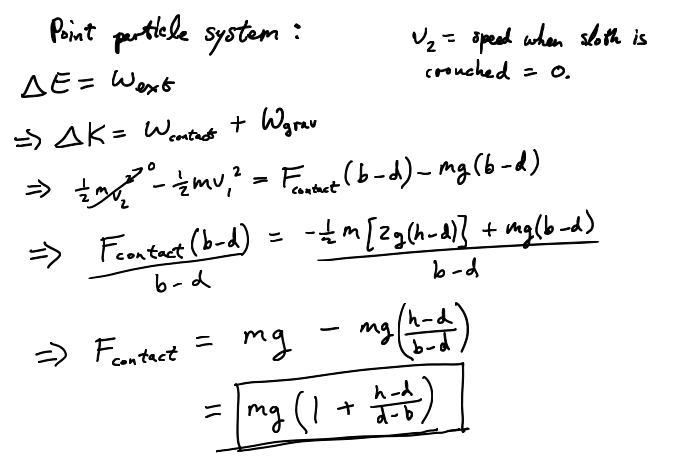 Point particle system :
v₂ = speed when sloth is
crouched = 0.
ΔE = W_ext
⇒ ΔK = W_contact + W_grav
⇒ ½mv₂² ⁰ − ½mv₁² = F_contact(b−d) − mg(b−d)
⇒ F_contact(b−d)/(b−d) = (−½m[2g(h−d)] + mg(b−d))/(b−d)
⇒ F_contact = mg − mg((h−d)/(b−d))
= mg(1 + (h−d)/(d−b))